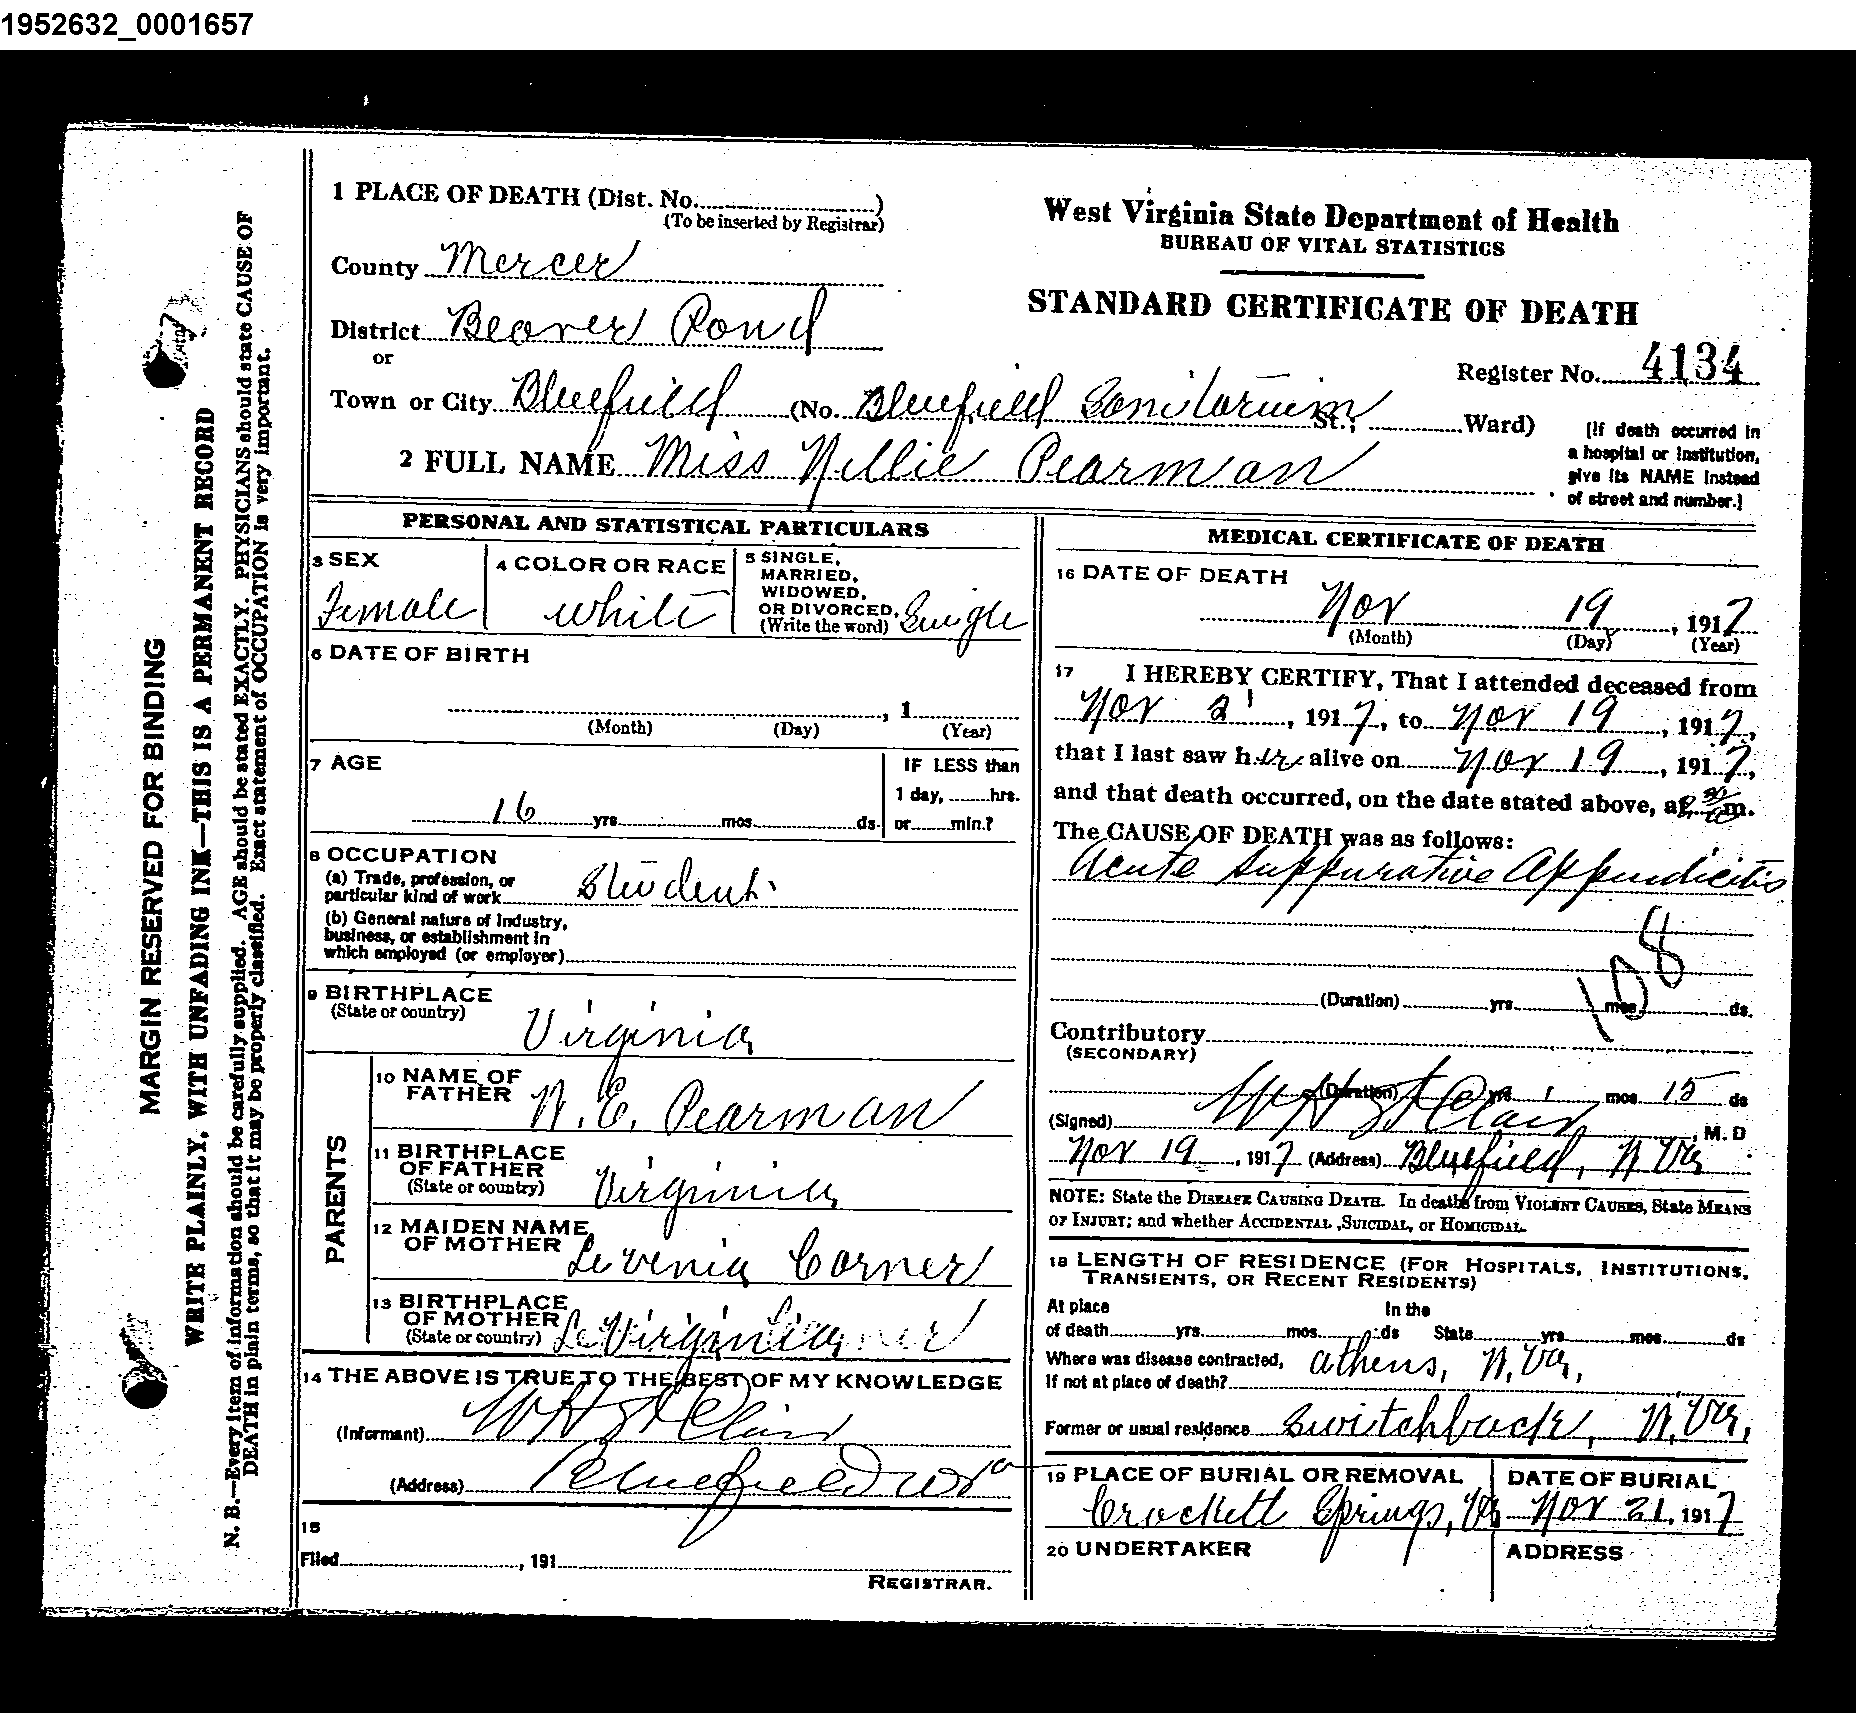 1952632_0001657
MARGIN RESERVED FOR BINDING
WRITE PLAINLY, WITH UNFADING INK—THIS IS A PERMANENT RECORD
N. B.—Every item of information should be carefully supplied. AGE should be stated EXACTLY. PHYSICIANS should state CAUSE OF
DEATH in plain terms, so that it may be properly classified. Exact statement of OCCUPATION is very important.
1 PLACE OF DEATH (Dist. No. )
(To be inserted by Registrar)
County Mercer
District Beaver Pond
or
Town or City Bluefield (No. Bluefield Sanitarium St., Ward)
West Virginia State Department of Health
BUREAU OF VITAL STATISTICS
STANDARD CERTIFICATE OF DEATH
Register No. 4134
[If death occurred in
a hospital or institution,
give its NAME instead
of street and number.]
2 FULL NAME Miss Nellie Pearman
PERSONAL AND STATISTICAL PARTICULARS
3 SEX
Female
4 COLOR OR RACE
White
5 SINGLE,
MARRIED,
WIDOWED,
OR DIVORCED,
(Write the word) Single
6 DATE OF BIRTH
, 1
(Month) (Day) (Year)
7 AGE
16 yrs. mos. ds.
IF LESS than
1 day, hrs.
or min.?
8 OCCUPATION
(a) Trade, profession, or
particular kind of work Student
(b) General nature of Industry,
business, or establishment in
which employed (or employer)
9 BIRTHPLACE
(State or country)
Virginia
PARENTS
10 NAME OF
FATHER W. E. Pearman
11 BIRTHPLACE
OF FATHER
(State or country) Virginia
12 MAIDEN NAME
OF MOTHER Levenia Corner
13 BIRTHPLACE
OF MOTHER
(State or country) Virginia
14 THE ABOVE IS TRUE TO THE BEST OF MY KNOWLEDGE
(Informant) W H St Clair
(Address) Bluefield W Va
15
Filed , 191
REGISTRAR.
MEDICAL CERTIFICATE OF DEATH
16 DATE OF DEATH
Nov 19 , 1917
(Month) (Day) (Year)
17 I HEREBY CERTIFY, That I attended deceased from
Nov 2 , 1917, to Nov 19 , 1917,
that I last saw her alive on Nov 19 , 1917,
and that death occurred, on the date stated above, at m.
The CAUSE OF DEATH was as follows:
Acute Suppurative Appendicitis
108
(Duration) yrs. mos. ds.
Contributory
(SECONDARY)
(Duration) yrs. mos. 15 ds
(Signed) W H St Clair , M. D
Nov 19 , 1917 (Address) Bluefield, W Va
NOTE: State the DISEASE CAUSING DEATH. In deaths from VIOLENT CAUSES, State MEANS
OF INJURY; and whether ACCIDENTAL, SUICIDAL, or HOMICIDAL.
18 LENGTH OF RESIDENCE (FOR HOSPITALS, INSTITUTIONS,
TRANSIENTS, OR RECENT RESIDENTS)
At place In the
of death yrs. mos. ds State yrs. mos. ds
Where was disease contracted, Athens, W. Va.
If not at place of death?
Former or usual residence Switchback, W. Va.
19 PLACE OF BURIAL OR REMOVAL
Crockett Springs, Va
DATE OF BURIAL
Nov 21, 1917
20 UNDERTAKER
ADDRESS